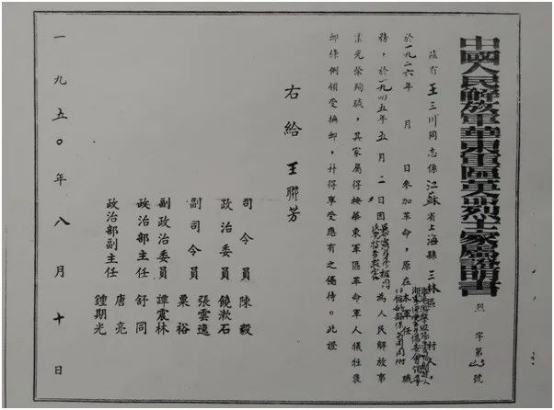 中國人民解放軍華東軍區革命烈士家屬證明書
烈字第 號
茲有王三川同志係江蘇省上海縣三林區 村人
於一九二六年 月 日參加革命,原在 任 職
務,於一九四五年五月二日因 為人民解放事
業光榮殉職,其家屬得按華東軍區革命軍人犧牲褒
卹條例領受撫卹,并得享受應有之優待。此證
右給 王聯芳
司令員 陳毅
政治委員 饒漱石
副司令員 張雲逸
粟裕
副政治委員 譚震林
政治部主任 舒同
政治部副主任 唐亮
鍾期光
一九五〇年八月十日